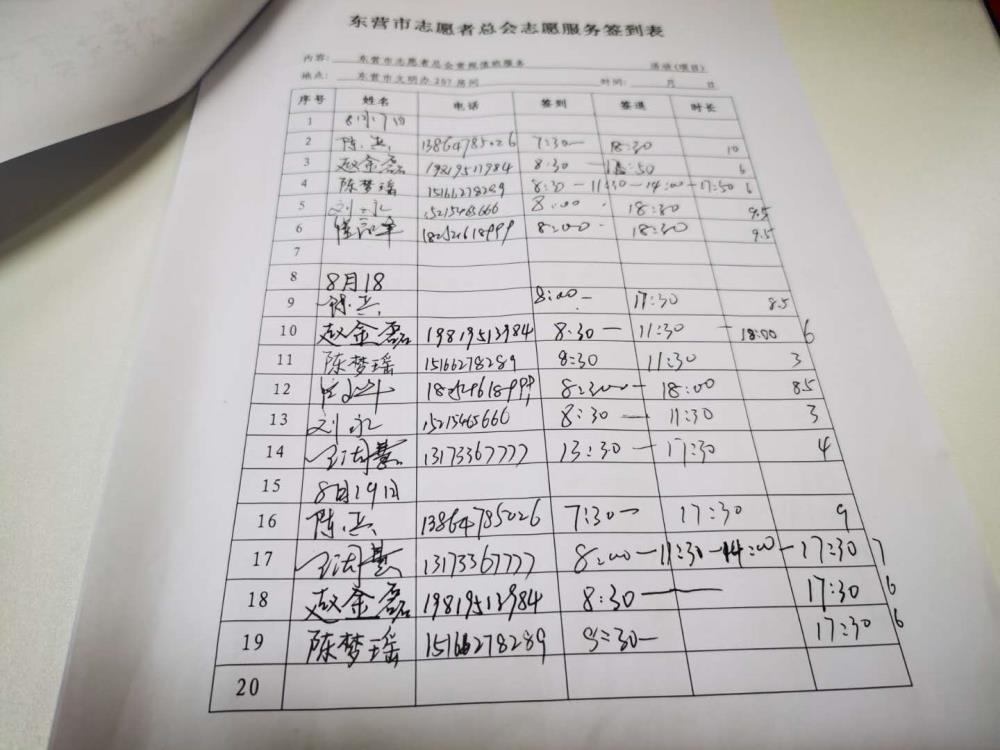 东营市志愿者总会志愿服务签到表
内容: 东营市志愿者总会常规值班服务 活动(项目)
地点: 东营市文明办257房间 时间: 月 日
序号 姓名 电话 签到 签退 时长
1 8月17日
2 13864785026 7:30— 18:30 10
3 赵金磊 19819513984 8:30 — 6
4 陈梦瑶 15166278289 8:30 — 11:30 — 14:00 — 17:30 6
5 刘永 15215465666 8:00 18:30 9.5
6 18252618999 8:00 18:30 9.5
7
8 8月18
9 8:00 — 17:30 8.5
10 赵金磊 19819513984 8:30 — 11:30 — 18:00 6
11 陈梦瑶 15166278289 8:30 11:30 3
12 — 18:00 8.5
13 刘永 15215465666 8:30 — 11:30 3
14 13173367777 13:30 — 17:30 4
15 8月19日
16 13864785026 7:30 — 17:30 9
17 13173367777 8:00 — 11:30 — 14:00 — 17:30 7
18 赵金磊 19819513984 8:30 — 17:30 6
19 陈梦瑶 15166278289 — 17:30 6
20